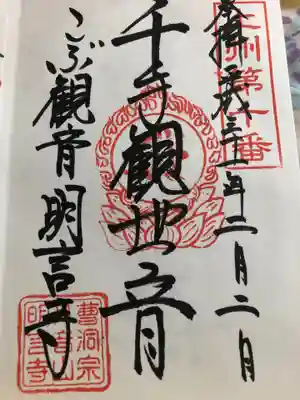 上州第十番
奉拝 平成三十一年二月二日
千手觀世音
こぶ観音 明言寺
曹洞宗
明言寺